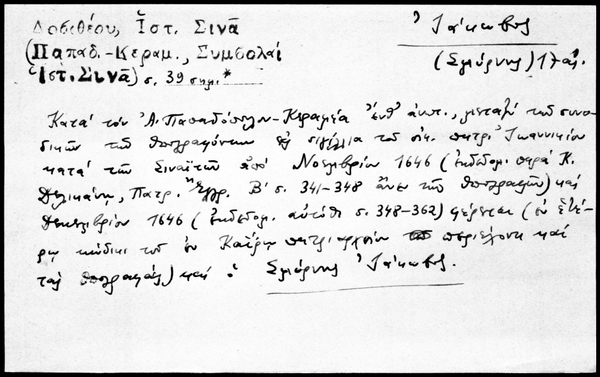 Δοσιθέου, Ἱστ. Σινᾶ
(Παπαδ.-Κεραμ., Συμβολαί
Ἱστ. Σινᾶ) σ. 39 σημ.*
Ἰάκωβος
(Σμύρνης) 17 αἰ.
Κατά τόν Ἀ. Παπαδόπουλον-Κεραμέα ἔνθ' ἀνωτ., μεταξύ τῶν συνο-
δικῶν τῶν ὑπογραψάντων τά σιγίλλια τοῦ οἰκ. πατρ. Ἰωαννικίου
κατά τῶν Σιναϊτῶν ἀπό Νοεμβρίου 1646 (ἐκδεδομ. παρά Κ.
Δελικάνῃ, Πατρ. Ἔγγρ. Β' σ. 341-348 ἄνευ τῶν ὑπογραφῶν) καί
Δεκεμβρίου 1646 (ἐκδεδομ. αὐτόθι σ. 348-362) φέρεται (ἐν ἑτέ-
ρῳ κώδικι τοῦ ἐν Καΐρῳ πατριαρχείου περιέχοντι καί
τάς ὑπογραφάς) καί ὁ Σμύρνης Ἰάκωβος.